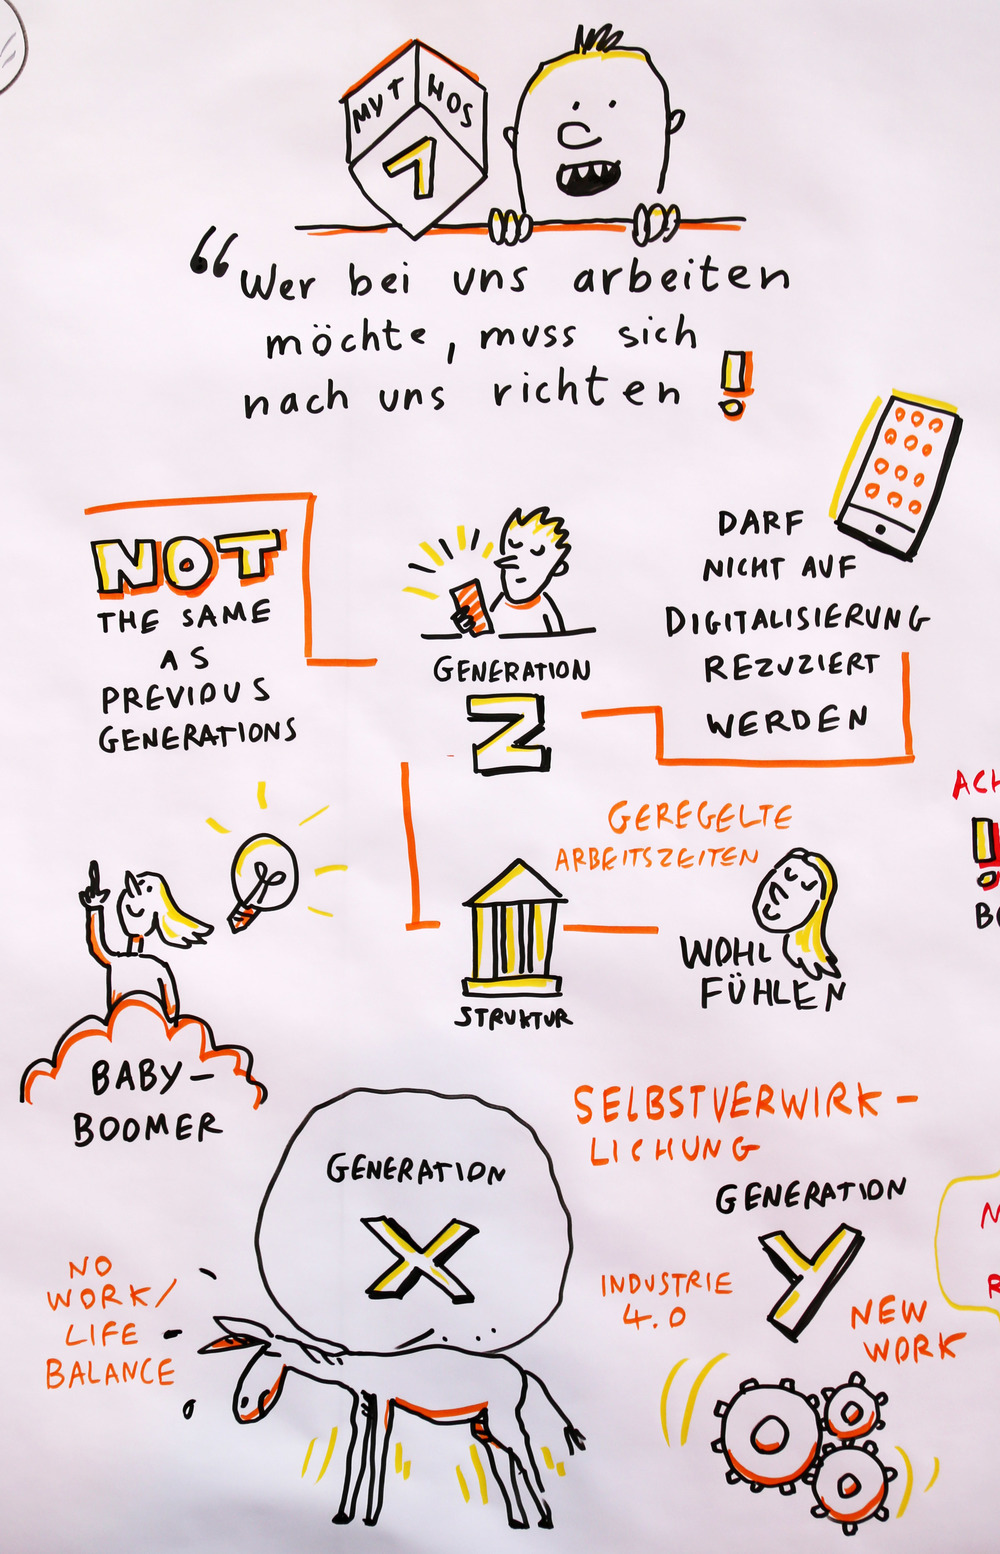 MYTHOS
1
“Wer bei uns arbeiten
möchte, muss sich
nach uns richten!
NOT
THE SAME
AS
PREVIOUS
GENERATIONS
GENERATION
Z
DARF
NICHT AUF
DIGITALISIERUNG
REZUZIERT
WERDEN
GEREGELTE
ARBEITSZEITEN
STRUKTUR
WOHL
FÜHLEN
BABY-
BOOMER
GENERATION
X
NO
WORK/
LIFE
BALANCE
SELBSTVERWIRK-
LICHUNG
GENERATION
Y
INDUSTRIE
4.0
NEW
WORK